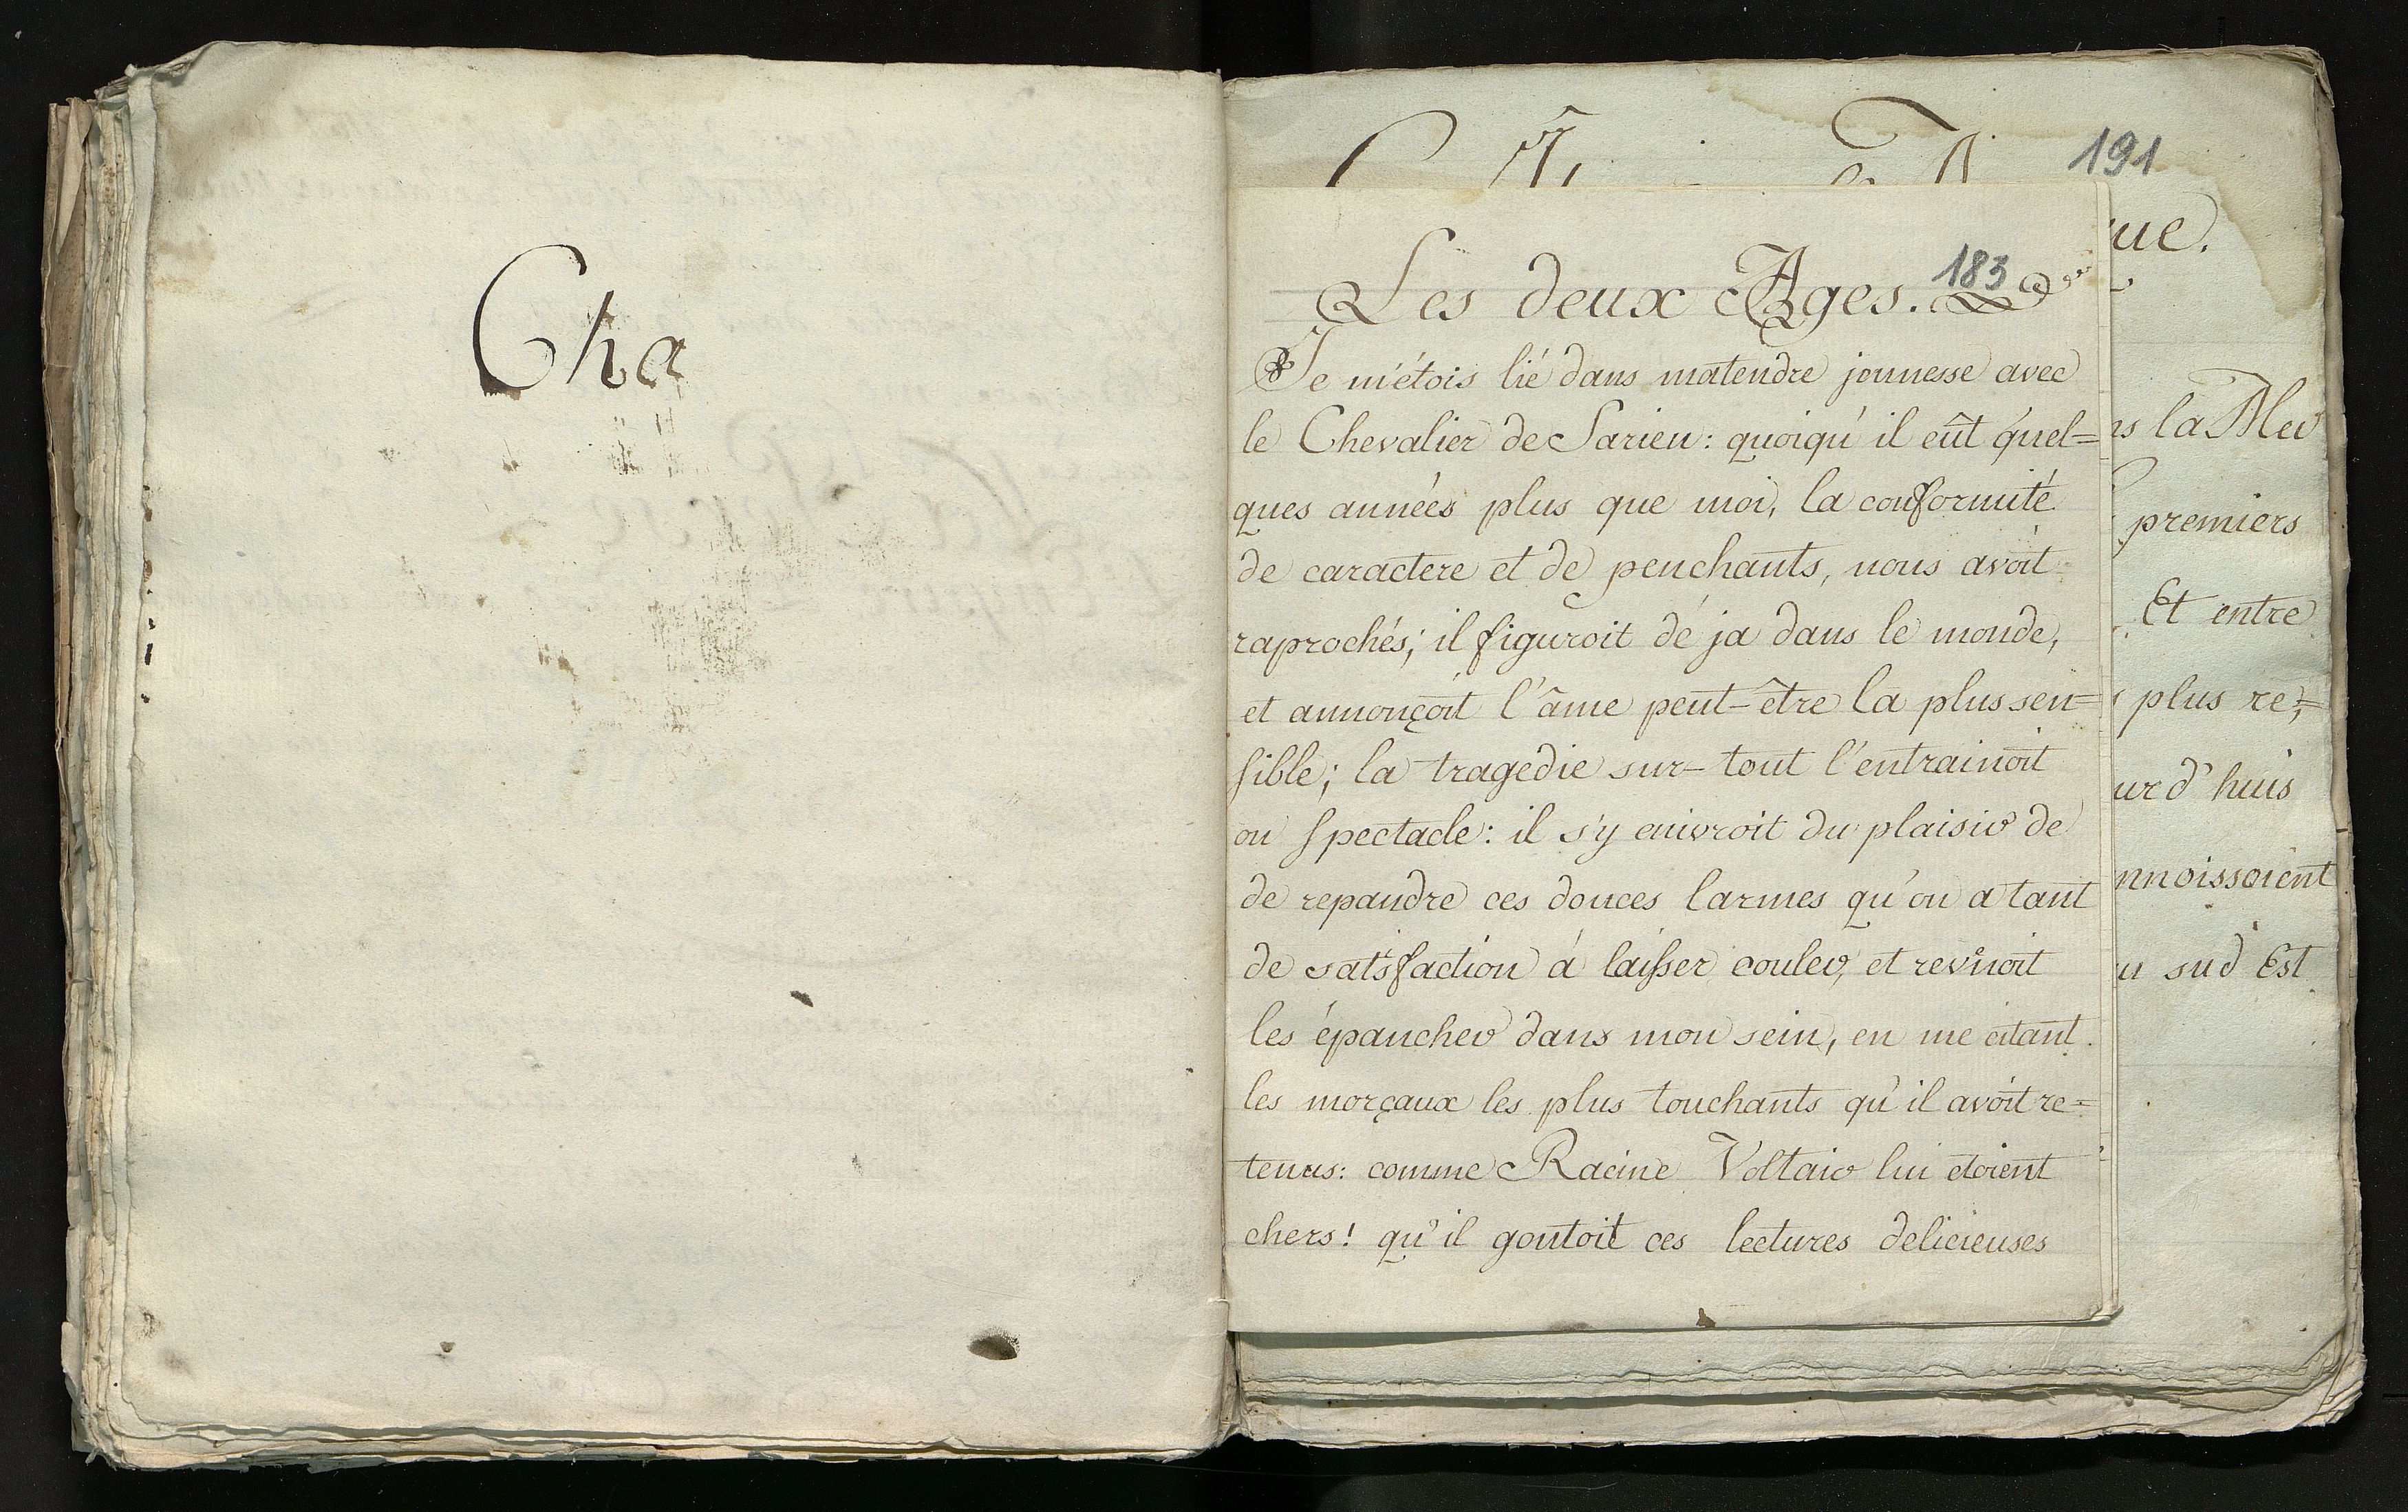 Cha
191
ue.
183
Les deux Ages.
Je m'étois lié dans matendre jeunesse avec
le Chevalier de Sarieu: quoiqu'il eût quel=
ques années plus que moi, la conformité
de caractere et de penchants, nous avoit
raprochés; il figuroit dé ja dans le monde,
et annonçoit l'âme peut-être la plus sen=
sible; la tragédie sur-tout l'entrainoit
ou spectacle: il s'y enivroit du plaisir de
de repandre ces douces larmes qu'on a tant
de satisfaction á laisser couler, et revinoit
les épancher dans mon sein, en me citant
les morçaux les plus touchants qu'il avoit re=
tenus: comme Racine Voltair lui etoient
chers! qu'il goutoit ces lectures delicieuses
ns la Mer
premiers
Et entre
plus re;=
urd'huis
nnoissoient
u sud Est